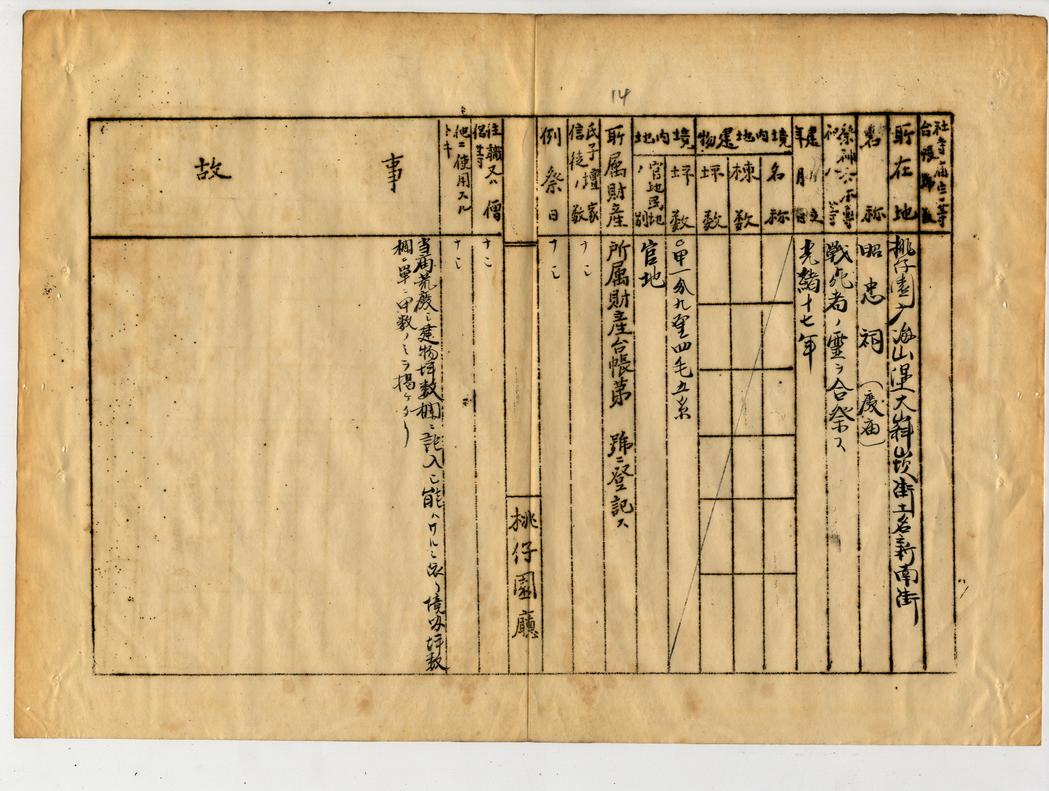 14
社寺廟宇等
台帳番號
所在地
桃仔園廳海山堡大嵙崁街土名新南街
名称
昭忠祠（廢廟）
祭神
戰死者ノ霊ヲ合祭ス
建立
年月日
光緒十七年
境內地建物
名称
棟数
坪数
境內地
坪数
〇甲一分九厘四毛五糸
官地民地ノ別
官地
所属財産
所属財産台帳第 號ニ登記ス
氏子壇家
信徒ノ数
ナシ
例祭日
ナシ
桃仔園廳
住職又ハ僧
侶等
ナシ
他ニ使用スル
トキ
ナシ
事故
当廟荒廢シ建物坪数欄ニ記入シ能ハサルニ依リ境内坪数
欄ニ單ニ甲数ノミヲ掲ケタリ